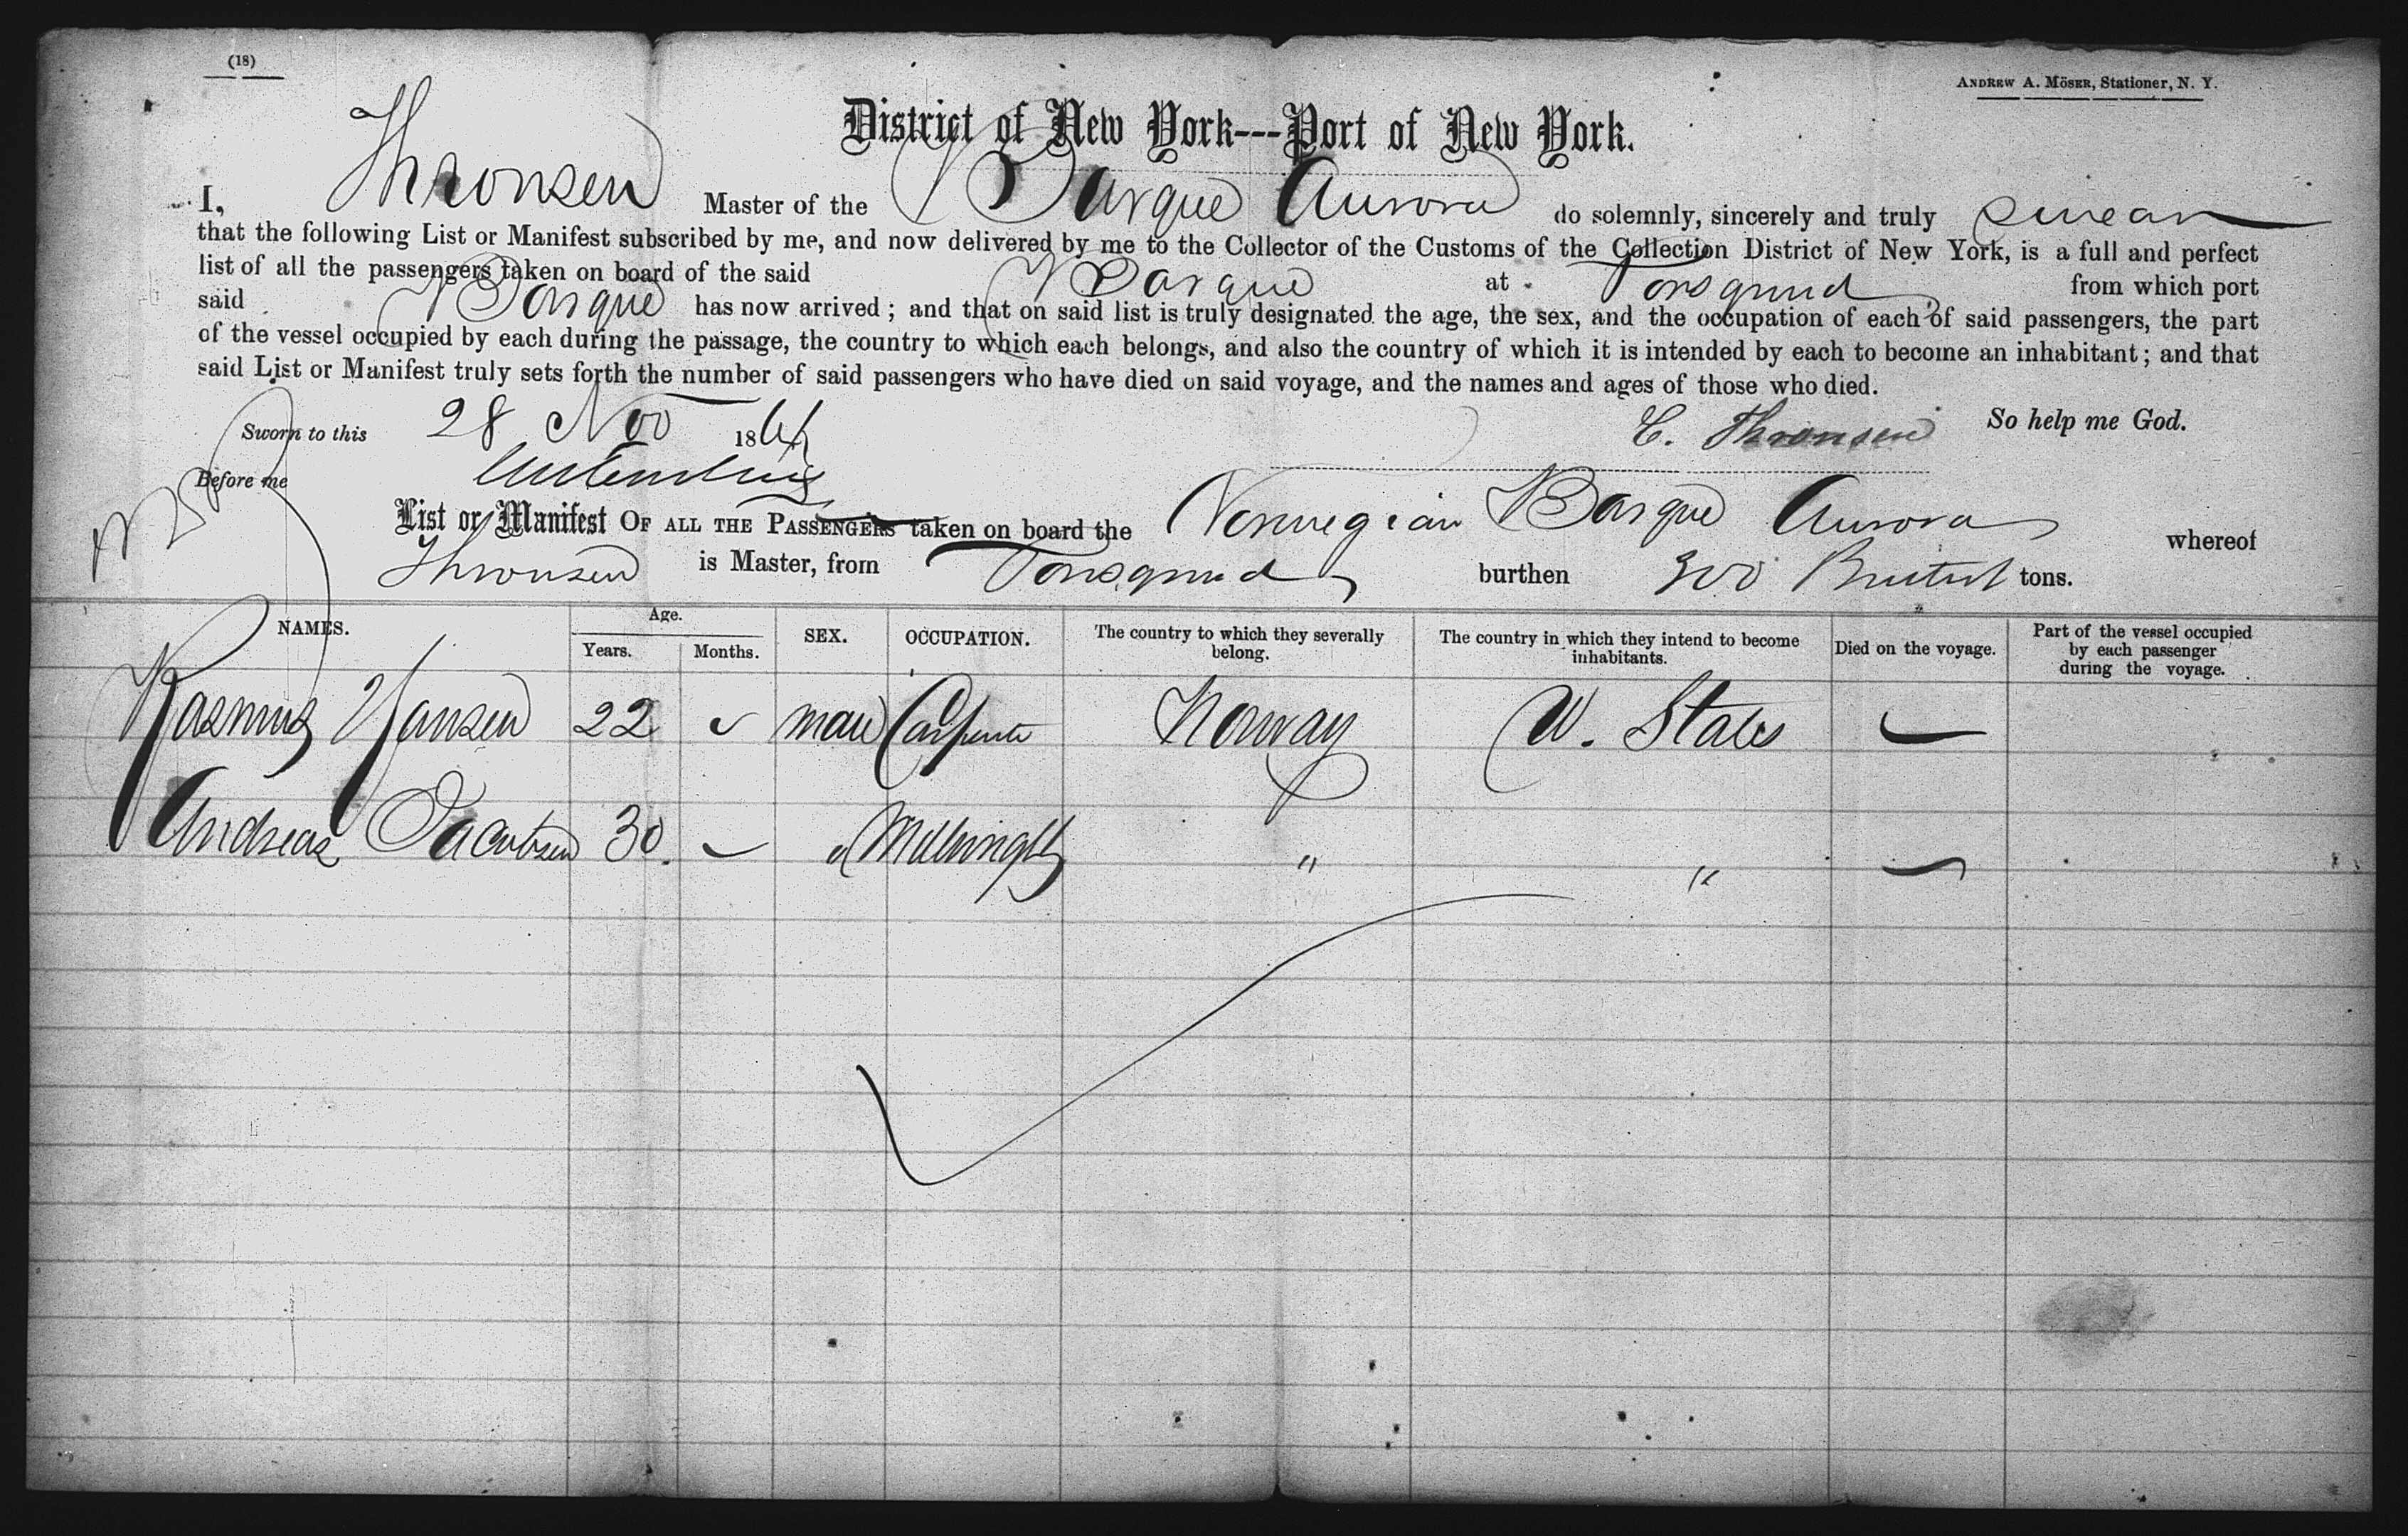 (18)
ANDREW A. MÖSER, Stationer, N. Y.
District of New York---Port of New York.
I, Thronsen Master of the Barque Aurora do solemnly, sincerely and truly swear
that the following List or Manifest subscribed by me, and now delivered by me to the Collector of the Customs of the Collection District of New York, is a full and perfect
list of all the passengers taken on board of the said Barque at Tonsgrund from which port
said Barque has now arrived; and that on said list is truly designated the age, the sex, and the occupation of each of said passengers, the part
of the vessel occupied by each during the passage, the country to which each belongs, and also the country of which it is intended by each to become an inhabitant; and that
said List or Manifest truly sets forth the number of said passengers who have died on said voyage, and the names and ages of those who died.
So help me God.
Sworn to this 28 Nov 186
C. Thronsen
Before me
List or Manifest OF ALL THE PASSENGERS taken on board the Norwegian Barque Aurora whereof
Thronsen is Master, from Tonsgrund burthen 300 tons.
NAMES. Age. Years. Months. SEX. OCCUPATION. The country to which they severally belong. The country in which they intend to become inhabitants. Died on the voyage. Part of the vessel occupied by each passenger during the voyage.
Rasmus Hansen 22 man Carpenter Norway U. States
Andreas Jacobsen 30 " Millwright " "